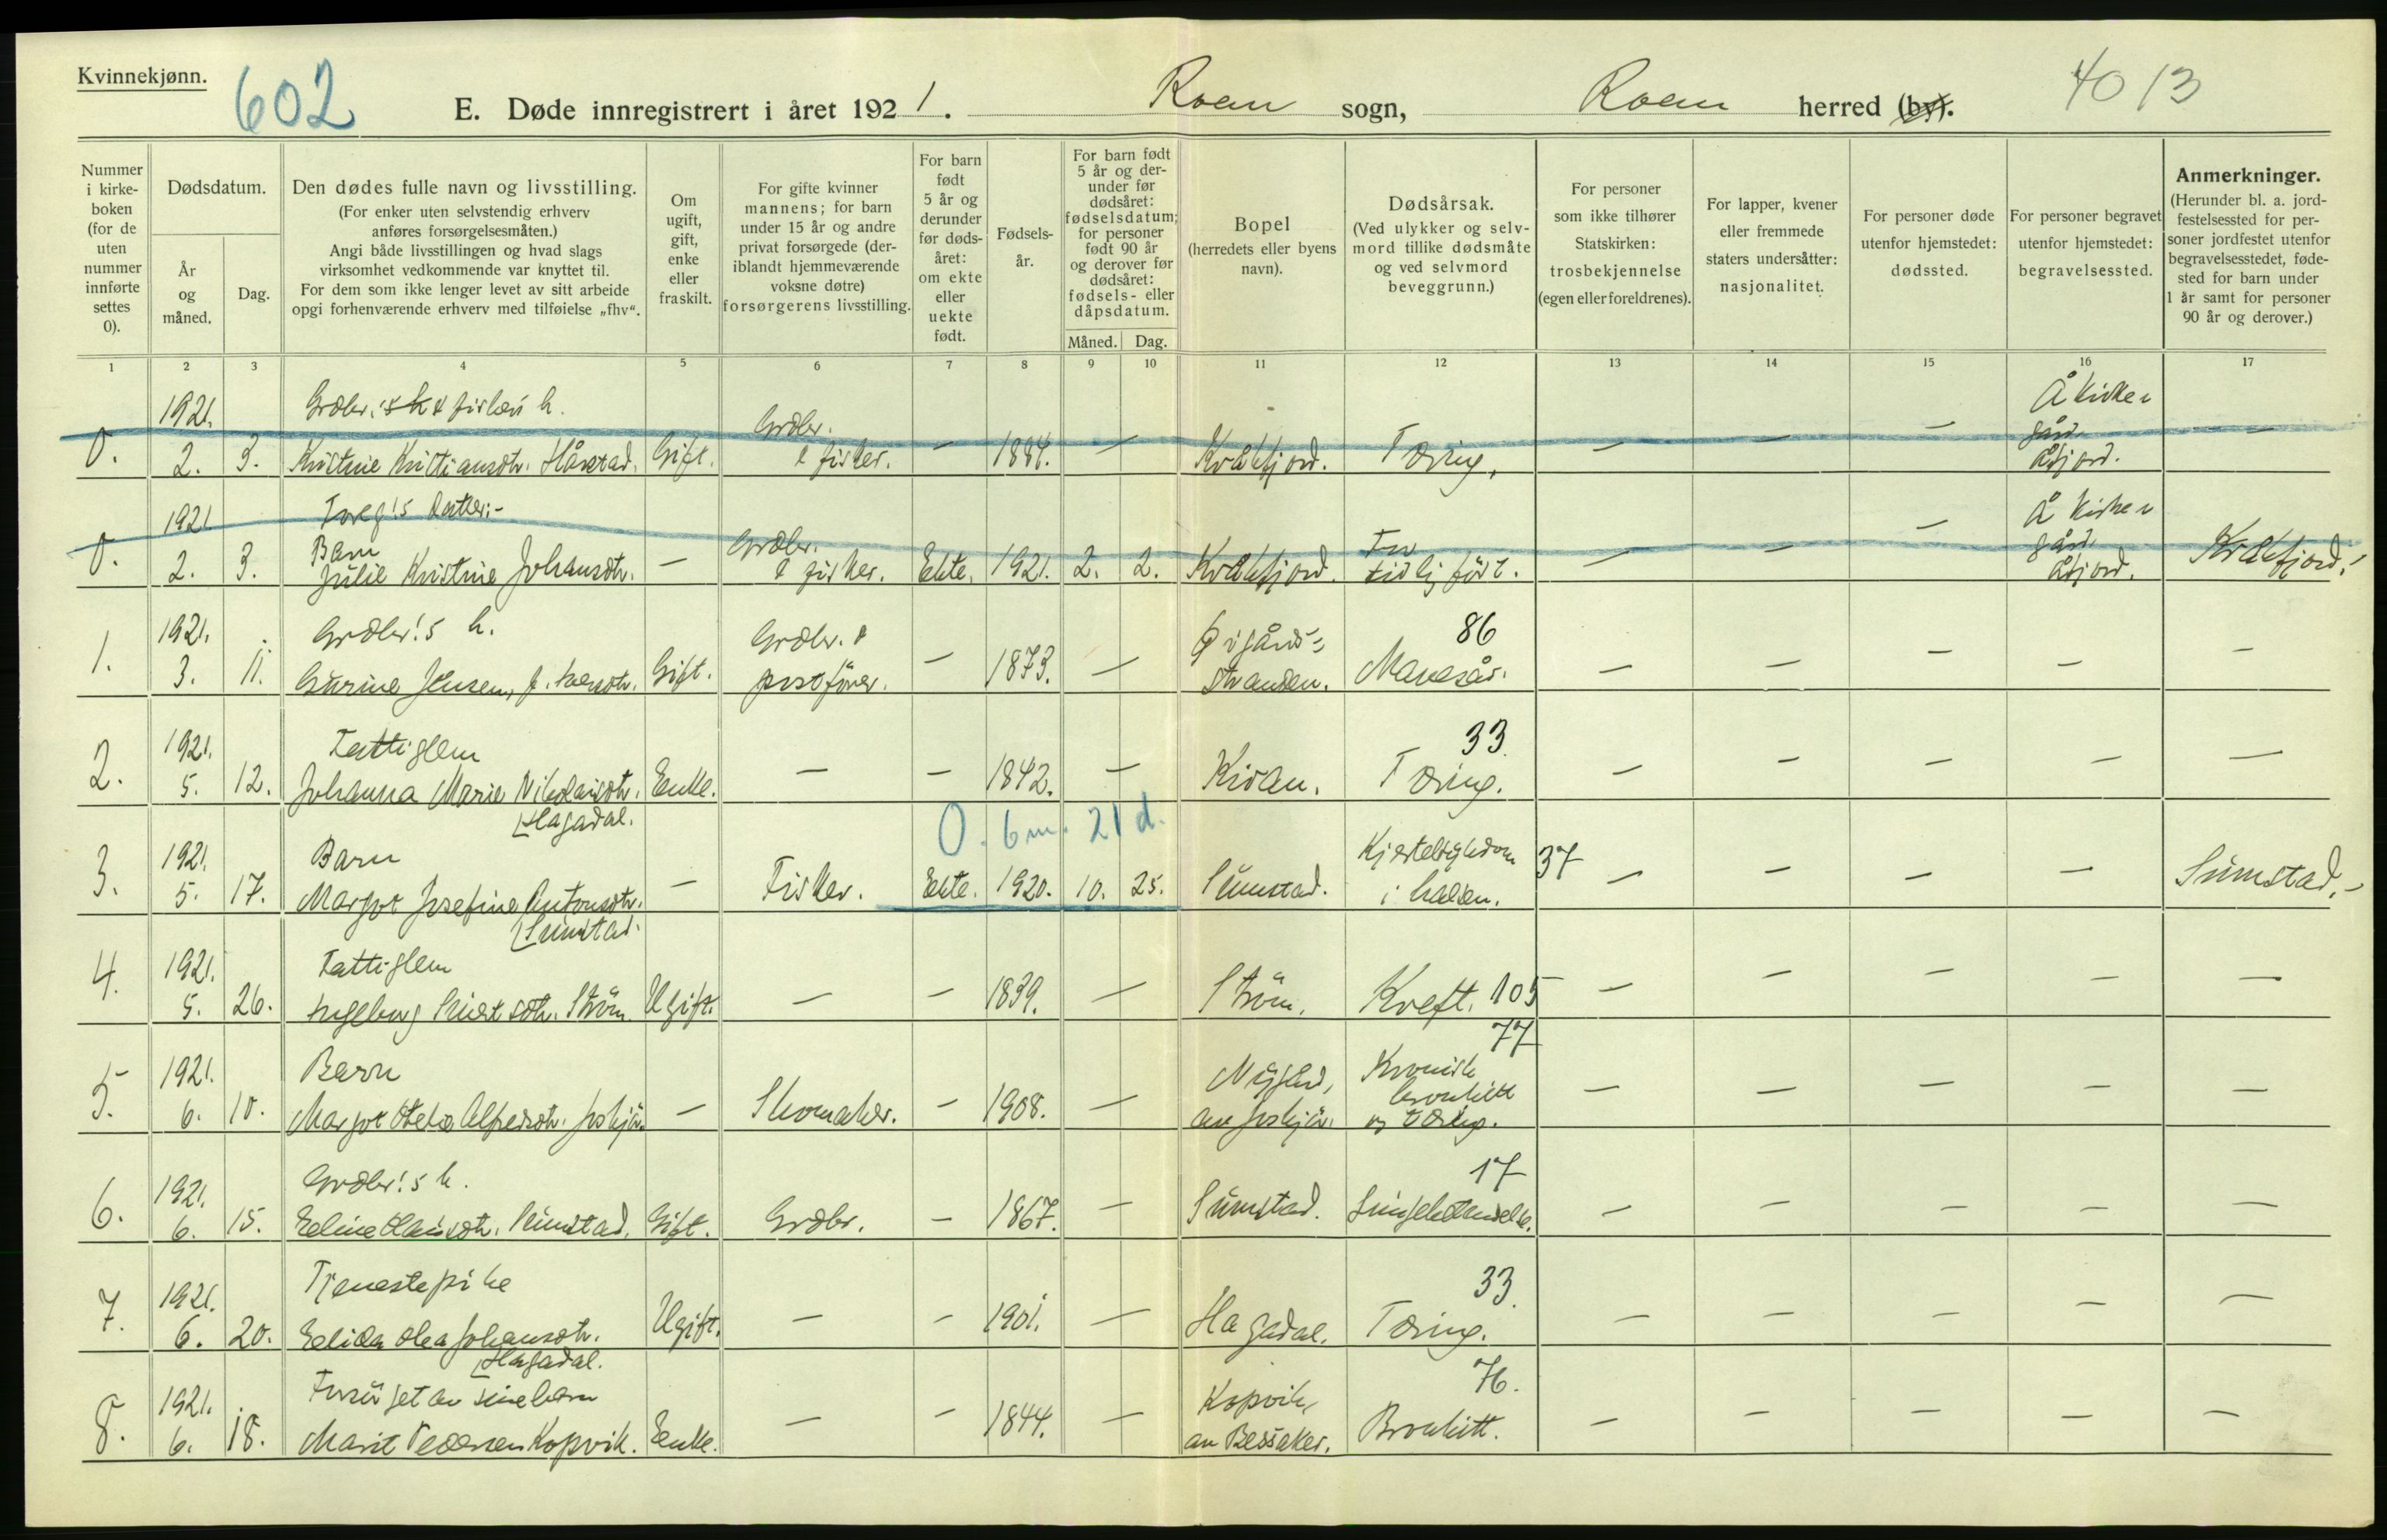 Kvinnekjønn.
602
E. Døde innregistrert i året 1921. Roan sogn, Roan herred (by).
4013
Nummer i kirke-boken (for de uten nummer innførte settes 0).
Dødsdatum.
År og måned.
Dag.
Den dødes fulle navn og livsstilling.
(For enker uten selvstendig erhverv anføres forsørgelsesmåten.)
Angi både livsstillingen og hvad slags virksomhet vedkommende var knyttet til.
For dem som ikke lenger levet av sitt arbeide opgi forhenværende erhverv med tilføielse „fhv“.
Om ugift, gift, enke eller fraskilt.
For gifte kvinner mannens; for barn under 15 år og andre privat forsørgede (deriblandt hjemmeværende voksne døtre) forsørgerens livsstilling.
For barn født 5 år og derunder før døds-året: om ekte eller uekte født.
Fødsels-år.
For barn født 5 år og der-under før dødsåret: fødselsdatum; for personer født 90 år og derover før dødsåret: fødsels- eller dåpsdatum.
Måned.
Dag.
Bopel (herredets eller byens navn).
Dødsårsak.
(Ved ulykker og selv-mord tillike dødsmåte og ved selvmord beveggrunn.)
For personer som ikke tilhører Statskirken: trosbekjennelse (egen eller foreldrenes).
For lapper, kvener eller fremmede staters undersåtter: nasjonalitet.
For personer døde utenfor hjemstedet: dødssted.
For personer begravet utenfor hjemstedet: begravelsessted.
Anmerkninger.
(Herunder bl. a. jord-festelsessted for per-soner jordfestet utenfor begravelsesstedet, føde-sted for barn under 1 år samt for personer 90 år og derover.)
1 2 3 4 5 6 7 8 9 10 11 12 13 14 15 16 17
1921. Å kirke-
Grdbr. gård
0. 2. 3. Kristine Kristiansdtr. Hårstad. Gift. & fisker. — 1884. — Kråkfjord. Tæring. — — — Åfjord. —
1921 Å kirke-
Barn Grdbr. For gård
0. 2. 3. Julie Kristine Johansdtr. — & fisker. Ekte. 1921. 2. 2. Kråkfjord. tidlig født. — — — Åfjord. Kråkfjord.
1921. Grdbr!s h. Grdbr. & 86
1. 3. 11. Gurine Jensen, f. Gift. postfører. — 1873. — stranden. Mavesår. — — — — —
1921. Fattiglem 33.
2. 5. 12. Johanna Marie Nikolaisdtr. Enke. — — 1842. — Kiran. Tæring. — — — — —
Hagadal. 0. 6 m. 21 d.
1921. Barn Kjertelsykdom 37
3. 5. 17. Margot Josefine Antonsdtr. — Fisker. Ekte. 1920. 10. 25. Sumstad. i halsen. — — — — Sumstad.
Sumstad.
1921. Fattiglem
4. 5. 26. Ingeborg Strøm. Ugift. — — 1839. — Strøm. Kreft. 105 — — — — —
77
1921. Barn Kronisk
bronkitt
5. 6. 10. Margot Alfredsdtr. — Skomaker. — 1908. — og tæring. — — — — —
1921. Grdbr!s h. 17
6. 6. 15. Eline Sumstad. Gift. Grdbr. — 1867. — Sumstad. — — — — —
1921. Tjenestepike 33.
7. 6. 20. Elida Olea Johansdtr. Ugift. — — 1901. — Hagadal. Tæring. — — — — —
Hagadal.
1921. Forsørget av sine barn Kopvik, 76.
8. 6. 18. Marit Pedersen Kopvik. Enke. — — 1844. — av Bessaker. Bronkitt. — — — — —